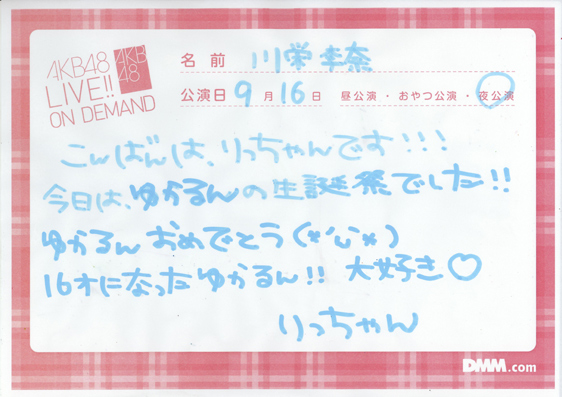 AKB48
LIVE!!
ON DEMAND
AKB
48
名前 川栄李奈
公演日 9月16日 昼公演・おやつ公演・夜公演
こんばんは、りっちゃんです!!!
今日は、ゆかるんの生誕祭でした!!
ゆかるんおめでとう(*'ω'*)
16才になったゆかるん!! 大好き♡
りっちゃん
DMM.com